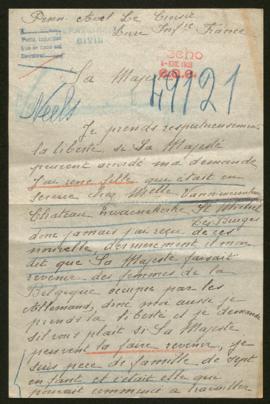 Penn Avel Le Croisic
Loire Infre France
Sa Majesté
49121
Neels
Je prends respectueusement
la liberté si Sa Majesté
peuvent accordé ma demande
J'ai une fille qui était en
service chez Melle
Chateau St Michel
les Bruges
dont jamais j'ai reçu de ces
nouvelle dernierement il m'on
dit que Sa Majesté faisait
revenir des femmes de la
Belgique occupé par les
Allemand, donc moi aussi je
prends la liberté et je demande
s'il vous plait si Sa Majesté
peuvent la faire revenir, je
suis père de famille de sept
enfant et c'était elle que
pouvait commencé a travailler